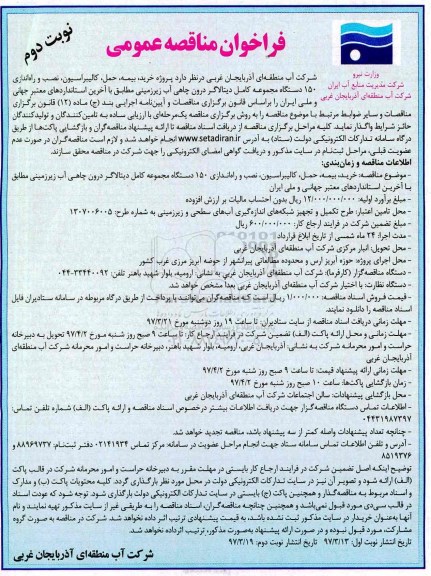 نوبت دوم
فراخوان مناقصه عمومی
وزارت نیرو
شرکت مدیریت منابع آب ایران
شرکت آب منطقه‌ای آذربایجان غربی
شرکت آب منطقه‌ای آذربایجان غربی درنظر دارد پروژه خرید، بیمه، حمل، کالیبراسیون، نصب و راه‌اندازی
۱۵۰ دستگاه مجموعه کامل دیتالاگر درون چاهی آب زیرزمینی مطابق با آخرین استانداردهای معتبر جهانی
و ملی ایران را براساس قانون برگزاری مناقصات و آیین‌نامه اجرایی بند (ج) ماده (۱۲) قانون برگزاری
مناقصات و سایر ضوابط مرتبط با موضوع مناقصه را به روش برگزاری مناقصه یک‌مرحله‌ای با ارزیابی ساده به تامین‌کنندگان و تولیدکنندگان
حائز شرایط واگذار نماید. کلیه مراحل برگزاری مناقصه از دریافت اسناد مناقصه تا ارائه پیشنهاد مناقصه‌گران و بازگشایی پاکت‌ها از طریق
درگاه سامانه تدارکات الکترونیکی دولت (ستاد) به آدرس www.setadiran.ir انجام خواهد شد و لازم است مناقصه‌گران در صورت عدم
عضویت قبلی، مراحل ثبت‌نام در سایت مذکور و دریافت گواهی امضای الکترونیکی را جهت شرکت در مناقصه محقق سازند.
اطلاعات مناقصه و زمان‌بندی:
- موضوع مناقصه: خرید، بیمه، حمل، کالیبراسیون، نصب و راه‌اندازی ۱۵۰ دستگاه مجموعه کامل دیتالاگر درون چاهی آب زیرزمینی مطابق
با آخرین استانداردهای معتبر جهانی و ملی ایران
- مبلغ برآورد اولیه: ۱۲/۰۰۰/۰۰۰/۰۰۰ ریال بدون احتساب مالیات بر ارزش افزوده
- محل تامین اعتبار: طرح تکمیل و تجهیز شبکه‌های اندازه‌گیری آب‌های سطحی و زیرزمینی به شماره طرح: ۱۳۰۷۰۰۶۰۰۵
- مبلغ تضمین شرکت در فرایند ارجاع کار: ۶۰۰/۰۰۰/۰۰۰ ریال
- مدت اجرا: ۲۴ ماه شمسی از تاریخ ابلاغ قرارداد
- محل تحویل: انبار مرکزی شرکت آب منطقه‌ای آذربایجان غربی
- محل اجرای پروژه: حوزه آبریز ارس و محدوده مطالعاتی پیرانشهر از حوضه آبریز مرزی غرب کشور
- دستگاه مناقصه‌گزار (کارفرما): شرکت آب منطقه‌ای آذربایجان غربی به نشانی: ارومیه، بلوار شهید باهنر تلفن: ۳۳۴۴۰۰۹۲-۰۴۴
- دستگاه نظارت: با اختیار شرکت آب منطقه‌ای آذربایجان غربی بعدا مشخص خواهد شد.
- قیمت فروش اسناد مناقصه: ۱/۰۰۰/۰۰۰ ریال است که مناقصه‌گران می‌توانند با پرداخت از طریق درگاه مربوطه در سامانه ستادیران فایل
اسناد مناقصه را دانلود نمایند.
- مهلت زمانی دریافت اسناد مناقصه از سایت ستادیران: تا ساعت ۱۹ روز دوشنبه مورخ ۹۷/۳/۲۱
- مهلت زمانی و محل ارائه پاکت (الف) تضمین شرکت در فرایند ارجاع کار: تا ساعت ۹ صبح روز شنبه مورخ ۹۷/۴/۲ تحویل به دبیرخانه
حراست و امور محرمانه شرکت به نشانی: آذربایجان غربی، ارومیه، بلوار شهید باهنر، دبیرخانه حراست و امور محرمانه شرکت آب منطقه‌ای
آذربایجان غربی
- مهلت زمانی ارائه پیشنهاد قیمت: تا ساعت ۹ صبح روز شنبه مورخ ۹۷/۴/۲
- زمان بازگشایی پاکت‌ها: ساعت ۱۰ صبح روز شنبه مورخ ۹۷/۴/۲
- محل بازگشایی پیشنهادات: سالن اجتماعات شرکت آب منطقه‌ای آذربایجان غربی
- اطلاعات تماس دستگاه مناقصه‌گزار جهت دریافت اطلاعات بیشتر در خصوص اسناد مناقصه و ارائه پاکت (الف) شماره تلفن تماس:
۰۴۴۳۱۹۸۷۳۹۷
- چنانچه تعداد پیشنهادات واصله کمتر از سه پیشنهاد باشد، مناقصه تجدید خواهد شد.
- آدرس و تلفن اطلاعات تماس سامانه ستاد جهت انجام مراحل عضویت در سامانه: مرکز تماس ۰۲۱۴۱۹۳۴ دفتر ثبت‌نام: ۸۸۹۶۹۷۳۷ و
۸۵۱۹۳۷۶
توضیح اینکه اصل تضمین شرکت در فرایند ارجاع کار بایستی در مهلت مقرر به دبیرخانه حراست و امور محرمانه شرکت در قالب پاکت
(الف) ارائه شود و تصویر آن نیز در سایت تدارکات الکترونیکی دولت در محل مورد نظر بارگذاری گردد. کلیه محتویات پاکت (ب) و مدارک
و اسناد مربوط به مناقصه‌گذار و همچنین پاکت (ج) بایستی در سایت تدارکات الکترونیکی دولت بارگذاری شود. توجه شود که عودت اسناد
در قالب سی‌دی مورد قبول نمی‌باشد و همچنین چنانچه مناقصه‌گران، اسناد مناقصه را به طریقی غیر از سایت مذکور تهیه نمایند و نام
آنها به‌عنوان خریدار در سایت مذکور ثبت نشده باشد، به قیمت پیشنهادی ترتیب اثر داده نخواهد شد. شرکت در مناقصه به صورت گروه
مشارکت، مورد قبول نبوده و در صورت ارائه پیشنهاد به‌صورت مذکور، ترتیب اثر داده نخواهد شد.
تاریخ انتشار نوبت اول: ۹۷/۳/۱۳ تاریخ انتشار نوبت دوم: ۹۷/۳/۱۹
شرکت آب منطقه‌ای آذربایجان غربی